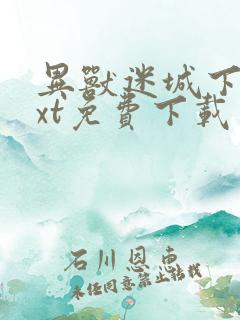 異獸迷城下
xt免費下載
石川恩惠
未經同意禁止轉載